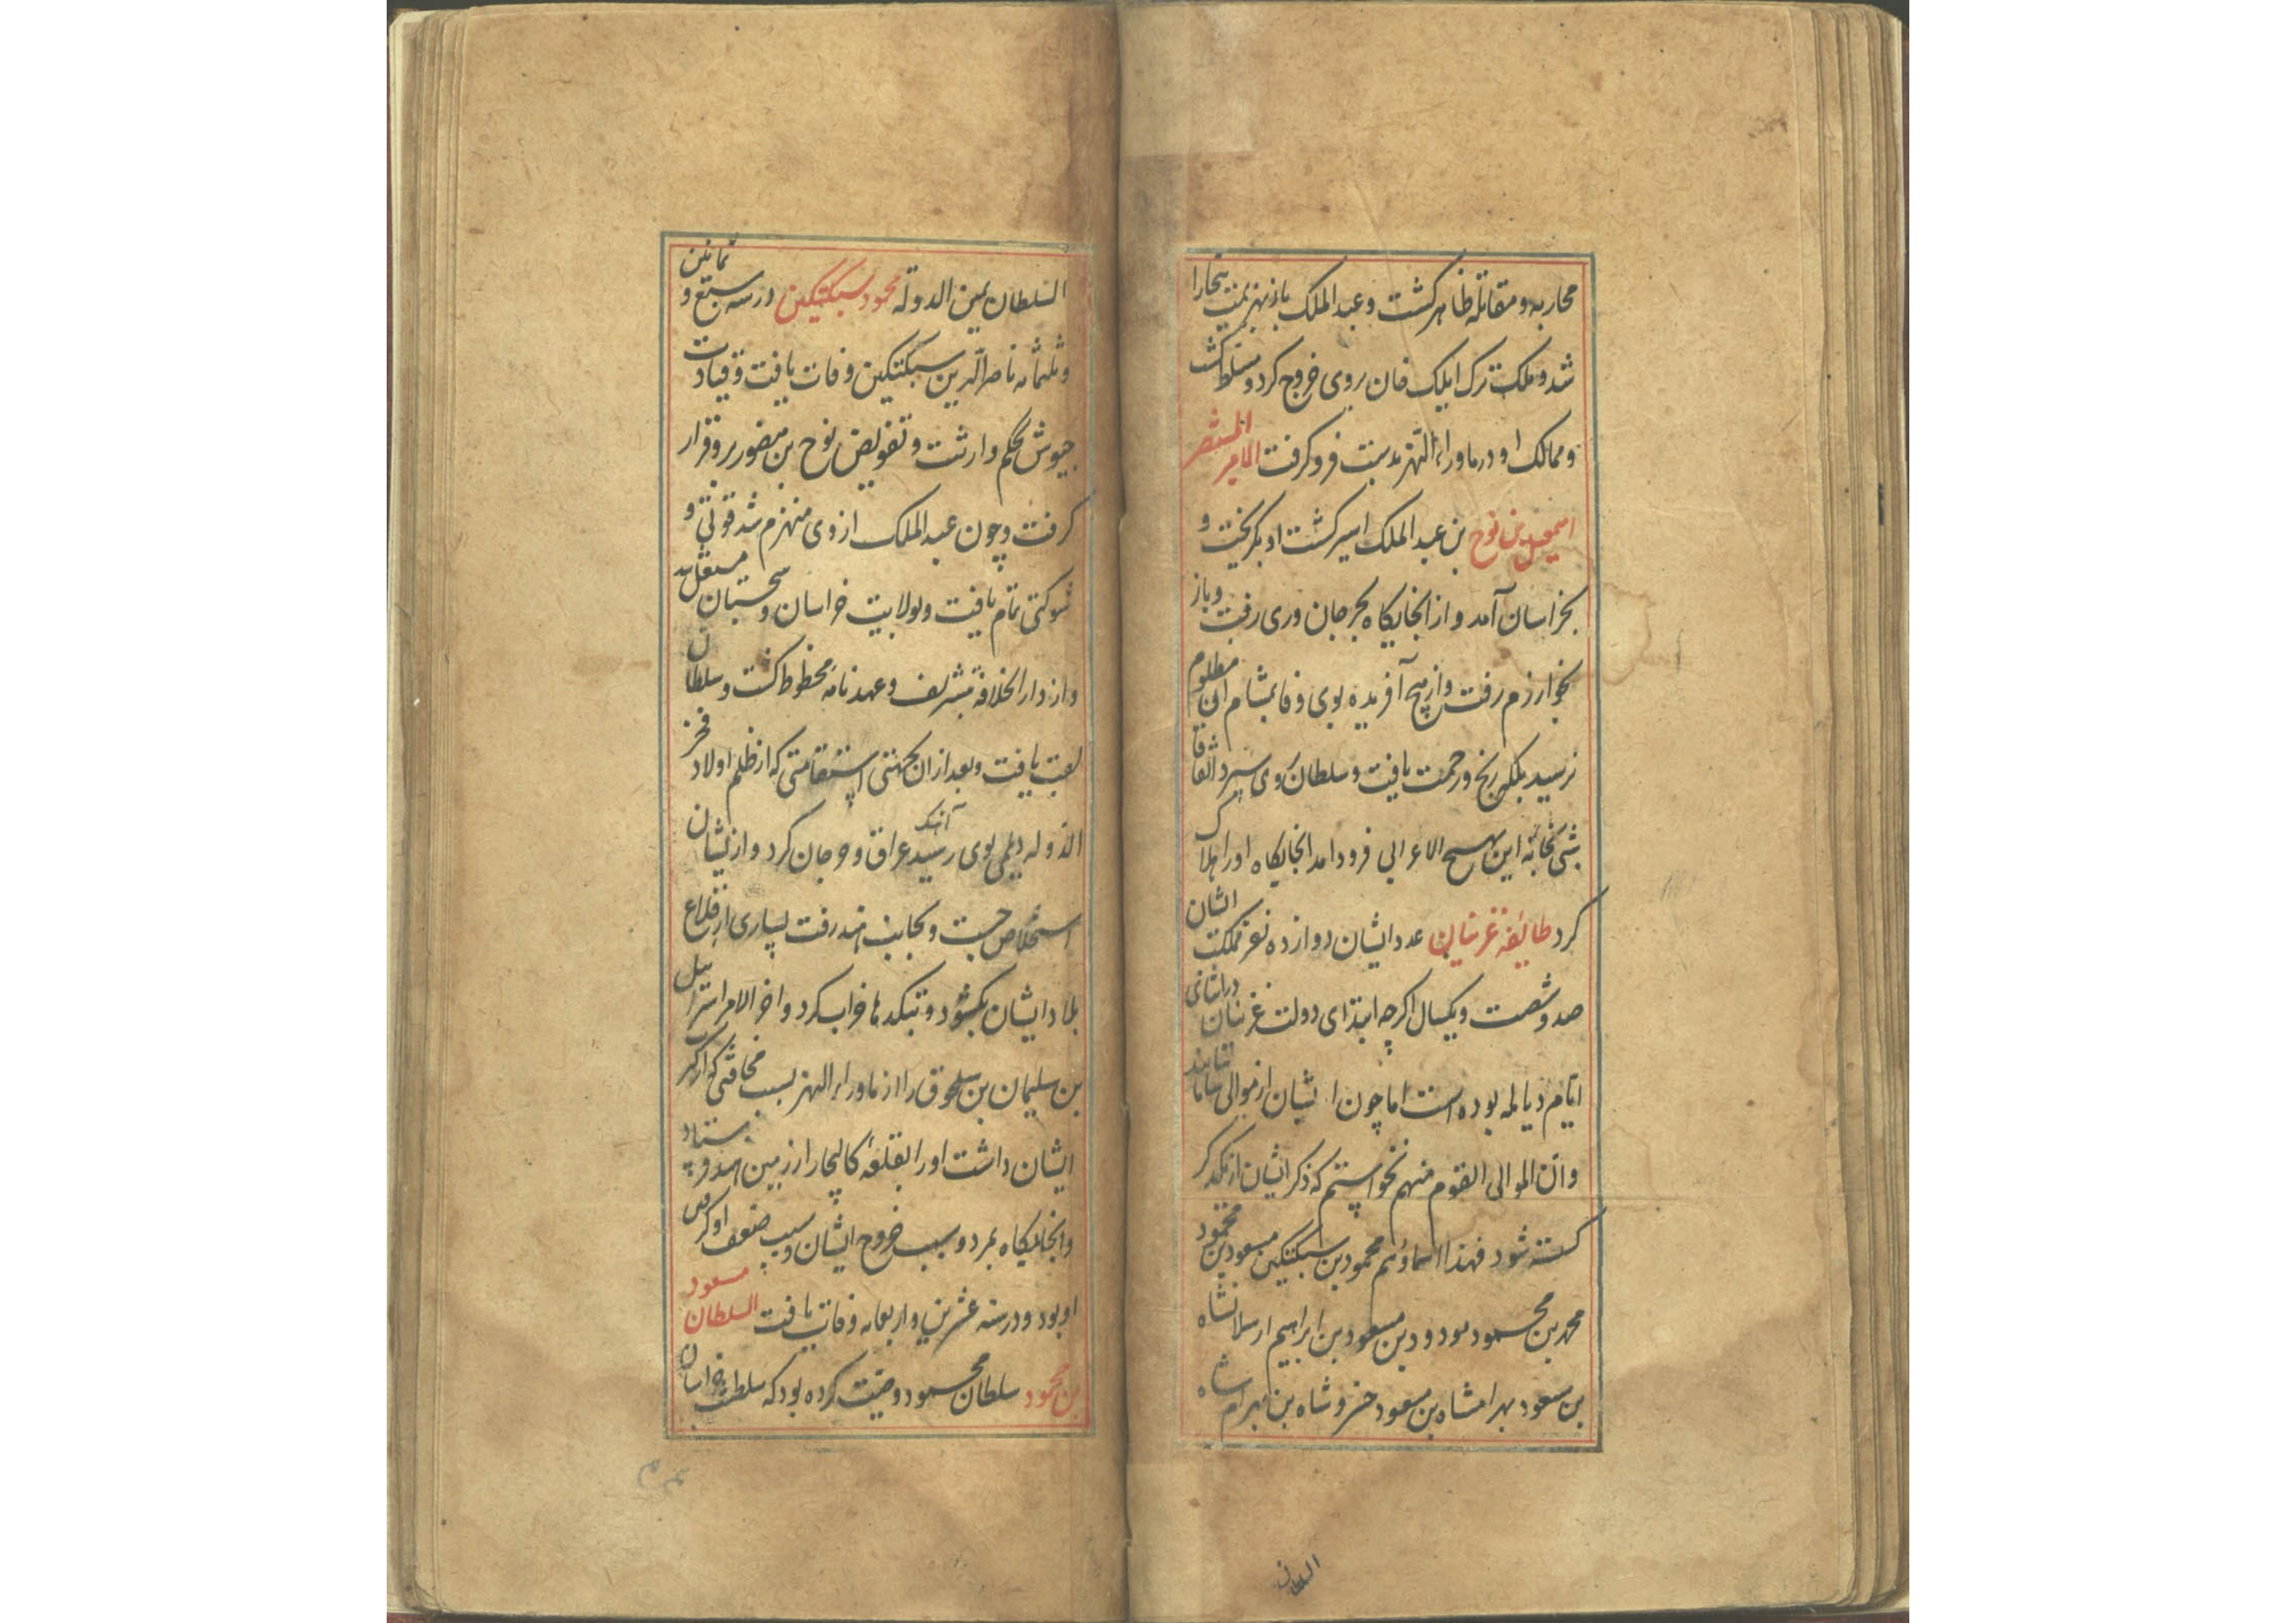 محاربه و مقاتله ظاهر کشت و عبد الملک باز بهزیمت بخارا
شد و ملک ترک ایلک خان بروی خروج کرد و مسلط کشت
و ممالک او در ماوراء النهر بدست فرو کرفت الامیر المنتصر
اسمعیل بن نوح بن عبد الملک اسیر کشت او بکریخت و
بخراسان آمد و از انجایکاه بجرجان و ری رفت و باز
بخوارزم رفت و از هیچ آفریده بوی وفا بمشام ان مظلوم
نرسید بلکه رنج و زحمت یافت و سلطان روی سپرد اتفاقا
شبی بخانه ابن بهیج الاعرابی فرود امد انجایکاه اورا هلاک
کرد طائفه غزنیان عدد ایشان دوازده نفر مملکت ایشان
صد و شصت و یکسال اکرچه ابتدای دولت غزنیان در اثنای
ایام دیالمه بوده است اما چون ایشان از موالی سامانیانند
وان الموالی القوم منهم نخواستم که ذکر ایشان از یکدیکر
کسسته شود فهذا اسماؤهم محمود بن سبکتکین مسعود بن محمود
محمد بن محمود مودود بن مسعود بن ابراهیم ارسلانشاه
بن مسعود بهرامشاه بن مسعود خسرو شاه بن بهرام شاه
السلطان
السلطان یمین الدوله محمود سبکتکین در سنه سبع و ثمانین
و ثلثمائه ناصر الدین سبکتکین وفات یافت و قیادت
جیوش بحکم وارثت و تفویض نوح بن منصور برو قرار
کرفت و چون عبد الملک از وی منهزم شد قوتی و
شوکتی تمام یافت و بولایت خراسان و سجستان مستقل شد
و از دار الخلافة بتشریف و عهدنامه محظوظ کشت و سلطان
لقب یافت و بعد از ان بجهتی استقامتی که از ظلم اولاد فخر
الدوله دیلمی بوی رسید آهنک عراق و جرجان کرد و از یشان
استخلاص جست و بجانب هند رفت بسیاری از قلاع
بلاد ایشان بکشود و بتکدها خراب کرد و اخر الامر اسرائیل
بن سلیمان بن سلجوق را از ماوراء النهر بسبب مخافتی که از کر
ایشان داشت اورا بقلعه کالیجار از زمین هند فرستاد
و انجایکاه بمرد و سبب خروج ایشان و سبب ضعف او کرفتن
او بود و در سنه عشرین و اربعمائه وفات یافت السلطان مسعود
بن محمود سلطان محمود وصیت کرده بود که سلطنت خراسان